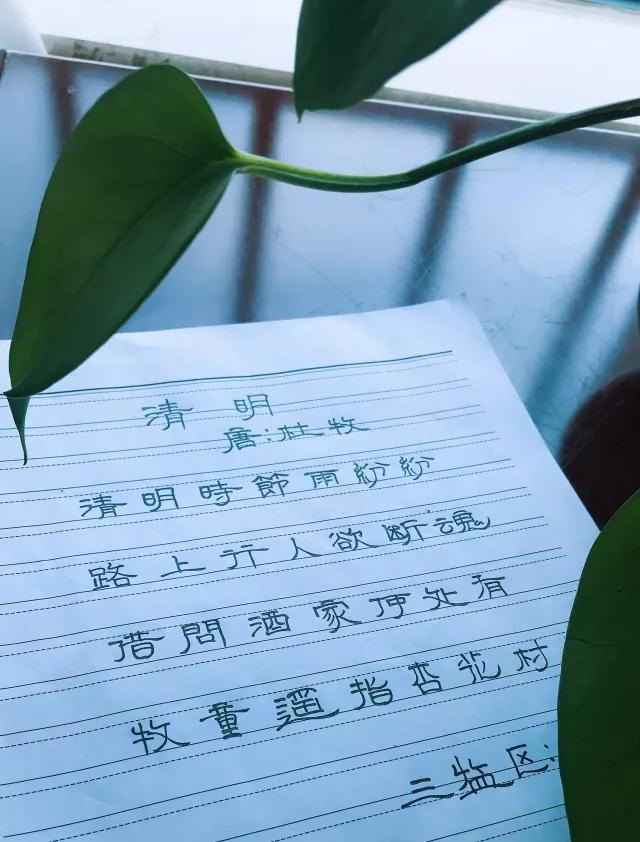 清 明
唐:杜牧
清明時節雨紛紛
路上行人欲断魂
借問酒家何处有
牧童遥指杏花村
三监区: